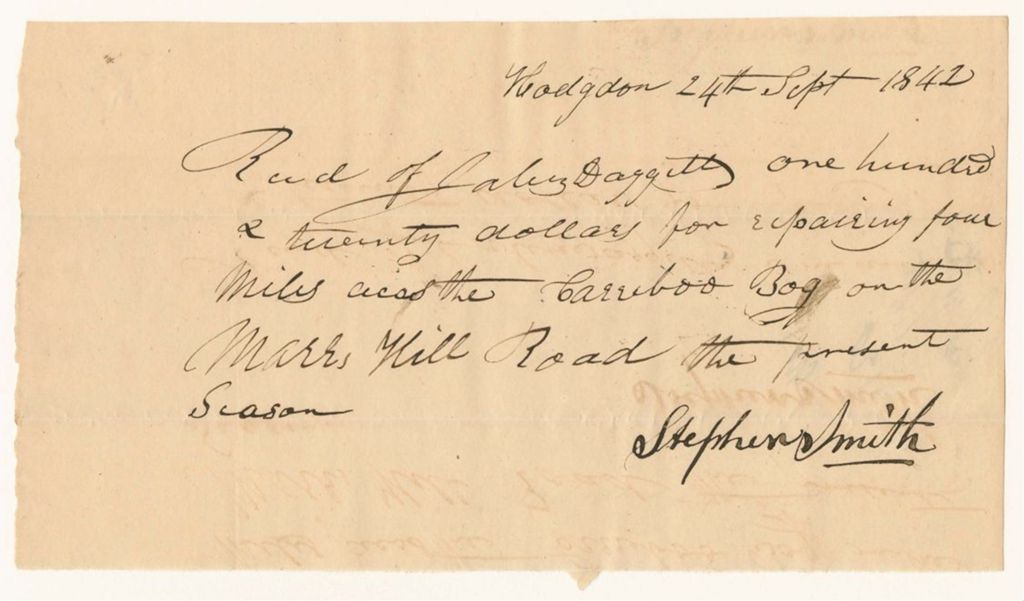 Hodgdon 24th Sept 1842
Recd of Jabez Daggett one hundred
& twenty dollars for repairing four
Miles across the Carreboo Bog on the
Marrs Hill Road the present
Season
Stephen Smith